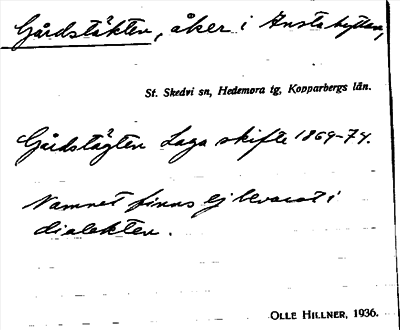 Gårdstäkten, åker i Anstahyttan,
St. Skedvi sn, Hedemora tg, Kopparbergs län.
Gårdstägten Laga skifte 1869-74.
Namnet finns ej bevarat i
dialekten.
OLLE HILLNER, 1936.